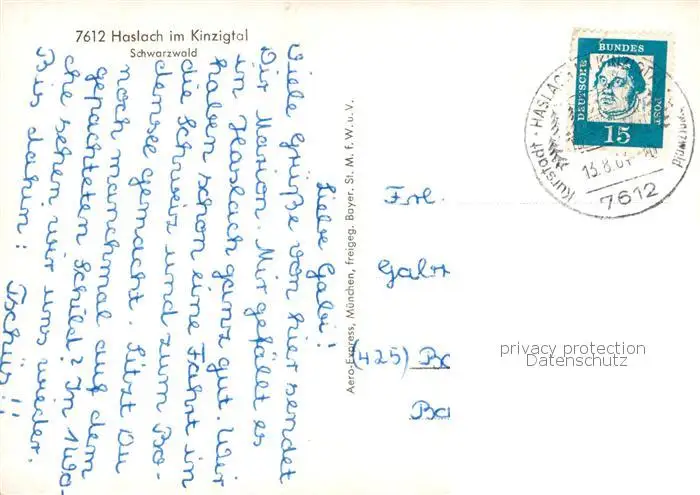 7612 Haslach im Kinzigtal
Schwarzwald
Liebe Gabi!
Viele Grüße von hier sendet
Dir Marion. Mir gefällt es
in Haslach ganz gut. Wir
haben schon eine Fahrt in
die Schweiz und zum Bo-
densee gemacht. Sitzt Du
noch manchmal auf dem
gepachteten Schild? In 1 Wo-
che sehen wir uns wieder.
Bis dahin!
Tschüs!!
Aero-Express, München, freigeg. Bayer. St. M. F. W. u. V.
DEUTSCHE BUNDES POST
15
HASLACH
Kurstadt
13.8.64
7612
Frl.
Gabr
(425) Bo
privacy protection
Datenschutz